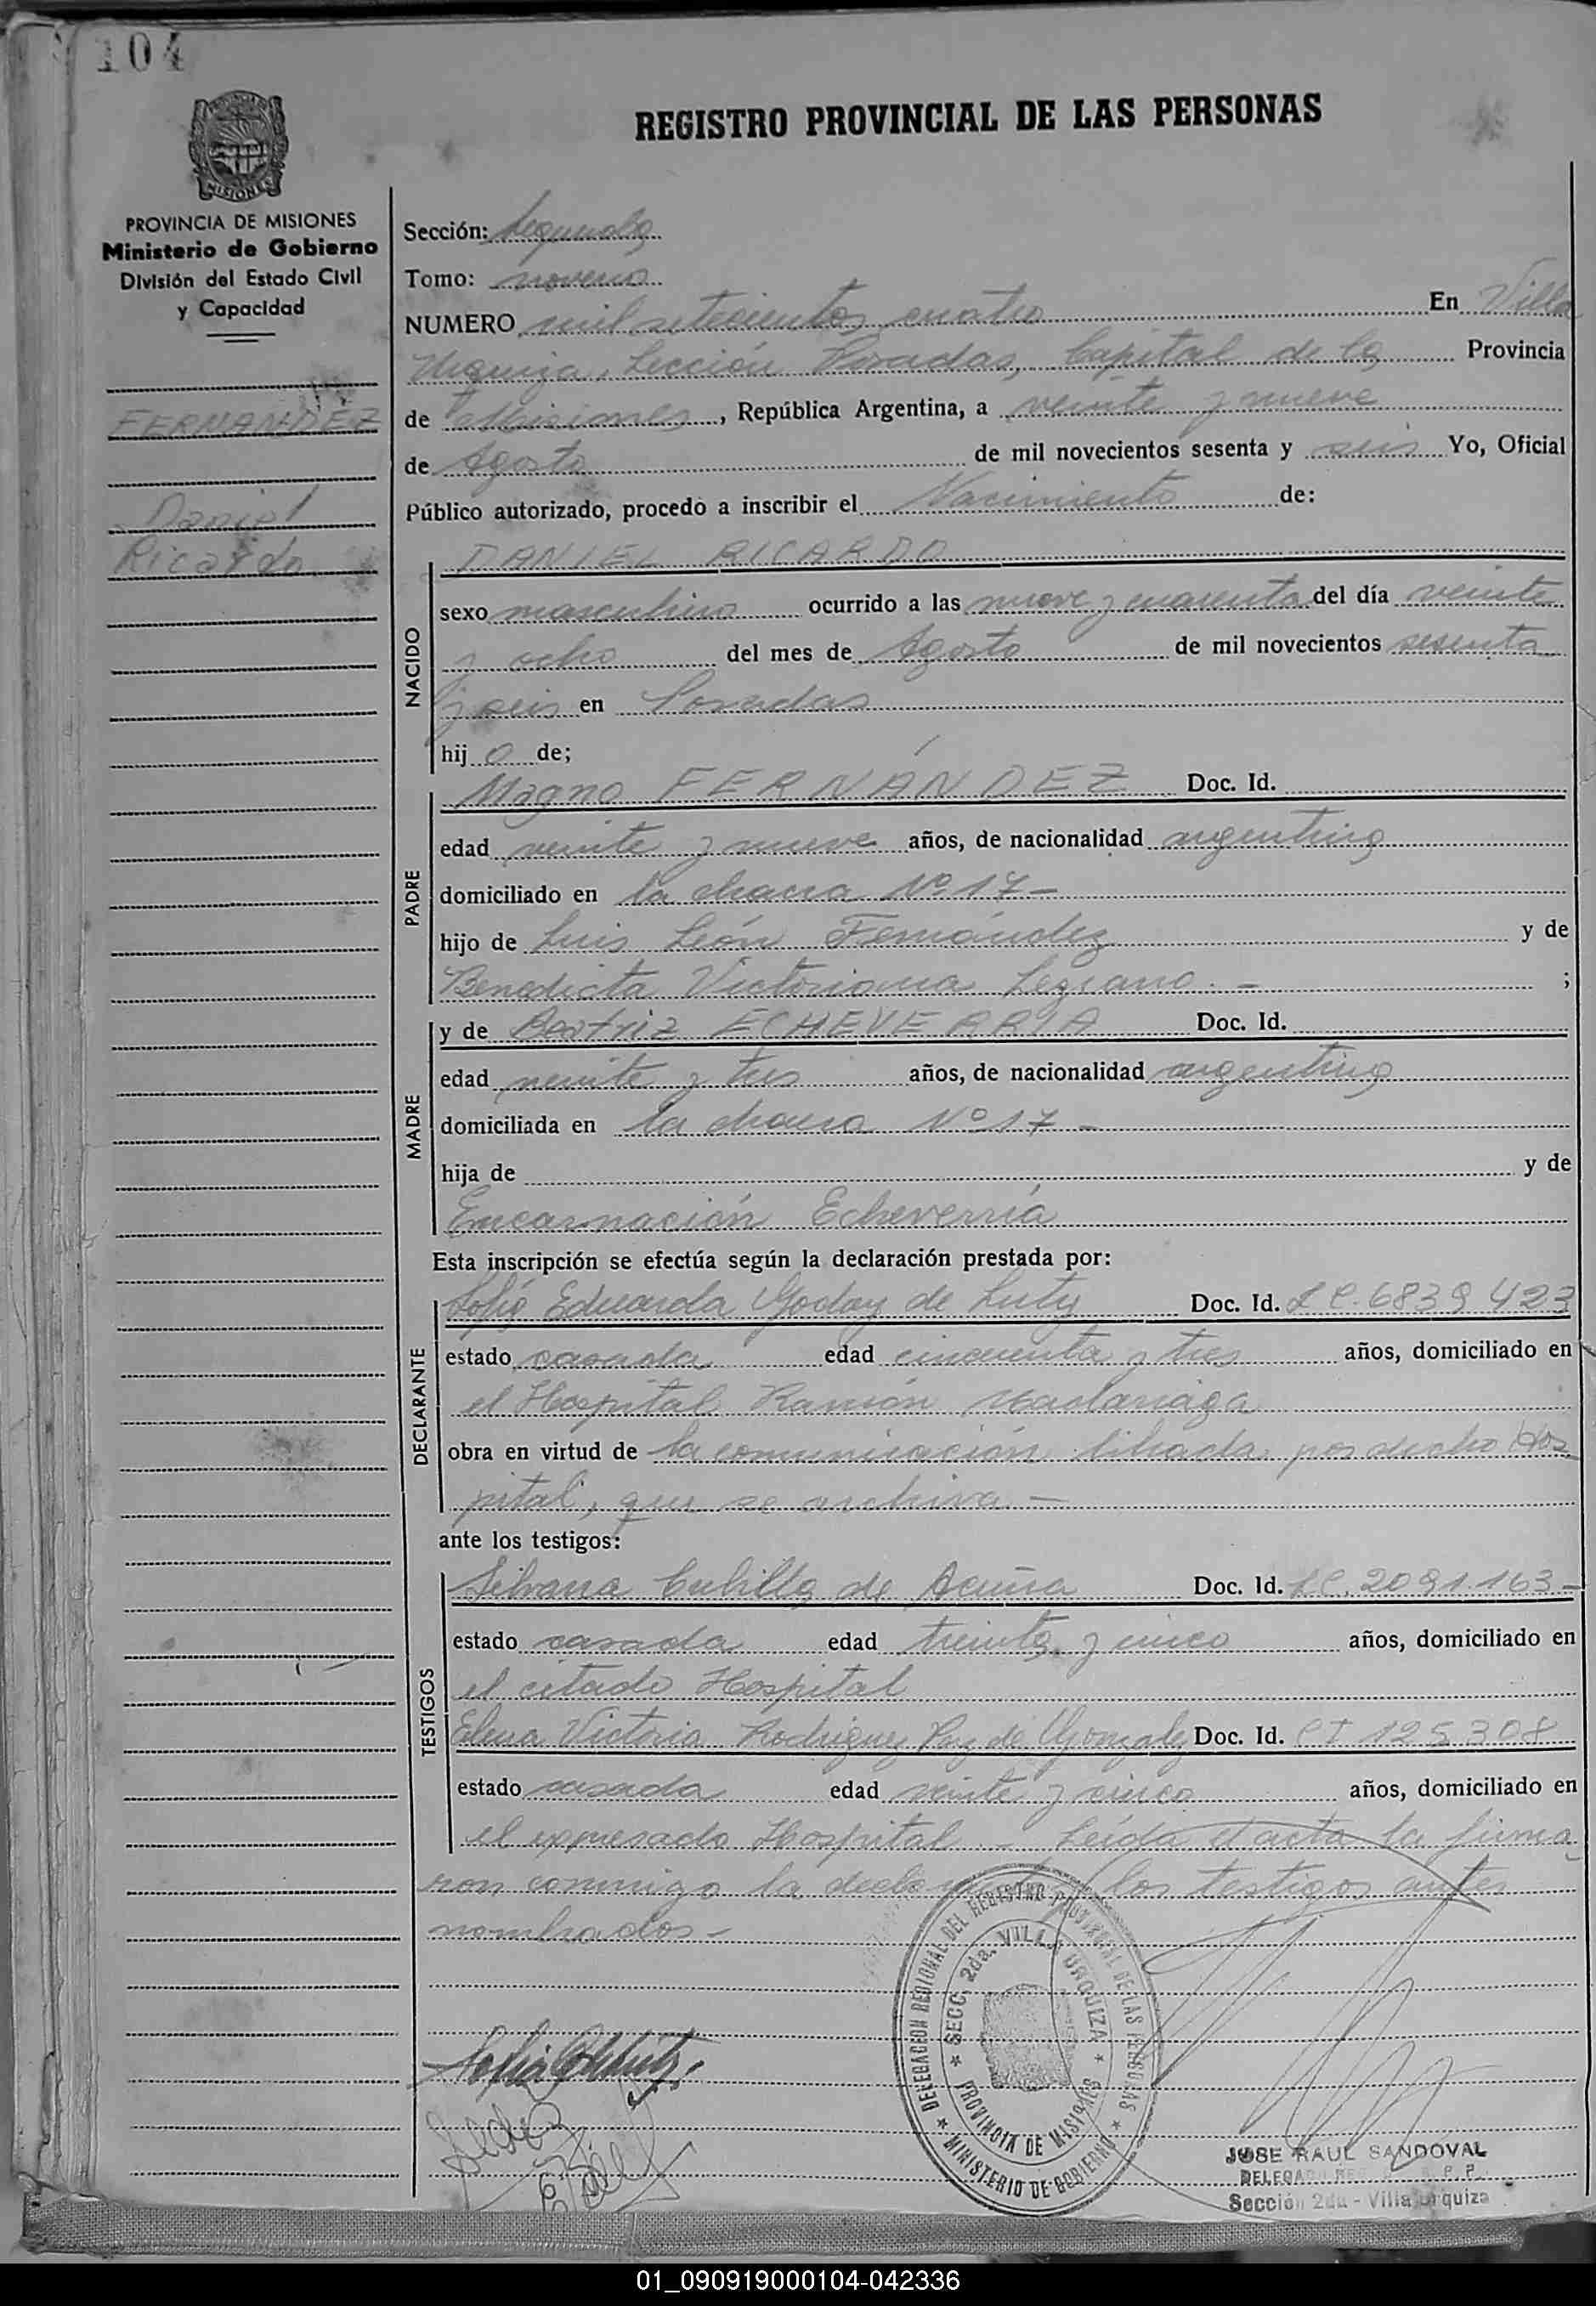 104
REGISTRO PROVINCIAL DE LAS PERSONAS
MISIONES
PROVINCIA DE MISIONES
Ministerio de Gobierno
División del Estado Civil
y Capacidad
FERNANDEZ
Daniel
Ricardo
Sección: Segunda
Tomo: noveno
NUMERO mil setecientos cuatro En Villa
Urquiza, Sección Posadas, Capital de la Provincia
de Misiones, República Argentina, a veinte y nueve
de Agosto de mil novecientos sesenta y seis Yo, Oficial
Público autorizado, procedo a inscribir el Nacimiento de:
NACIDO
DANIEL RICARDO
sexo masculino ocurrido a las nueve y cuarenta del día veinte
y ocho del mes de Agosto de mil novecientos sesenta
y seis en Posadas
hij o de;
PADRE
Magno FERNÁNDEZ Doc. Id.
edad veinte y nueve años, de nacionalidad argentina
domiciliado en la chacra Nº 17 -
hijo de Luis León Fernández y de
Benedicta Victoriana Lezcano. - ;
MADRE
y de Beatriz ECHEVERRIA Doc. Id.
edad veinte y tres años, de nacionalidad argentina
domiciliada en la chacra Nº 17 -
hija de y de
Encarnación Echeverría
Esta inscripción se efectúa según la declaración prestada por:
DECLARANTE
Sofía Eduarda Godoy de Luty Doc. Id. L C. 6839 423
estado casada edad cincuenta y tres años, domiciliado en
el Hospital Ramón Madariaga
obra en virtud de la comunicación librada por dicho Hos
pital, que se archiva -
ante los testigos:
TESTIGOS
Silvana Cubilla de Acuña Doc. Id. LC. 2091.163 -
estado casada edad treinta y cinco años, domiciliado en
el citado Hospital
Elena Victoria Rodriguez Paz de Gonzalez Doc. Id. C I 125.308
estado casada edad veinte y cinco años, domiciliado en
el expresado Hospital. - Leída el acta la firma
ron conmigo la declarante y los testigos antes
nombrados -
DELEGACION REGIONAL DEL REGISTRO PROVINCIAL DE LAS PERSONAS
* SECC. 2da. VILLA URQUIZA *
PROVINCIA DE MISIONES
* MINISTERIO DE GOBIERNO *
JOSE RAUL SANDOVAL
Sección 2da - Villa Urquiza
01_090919000104-042336